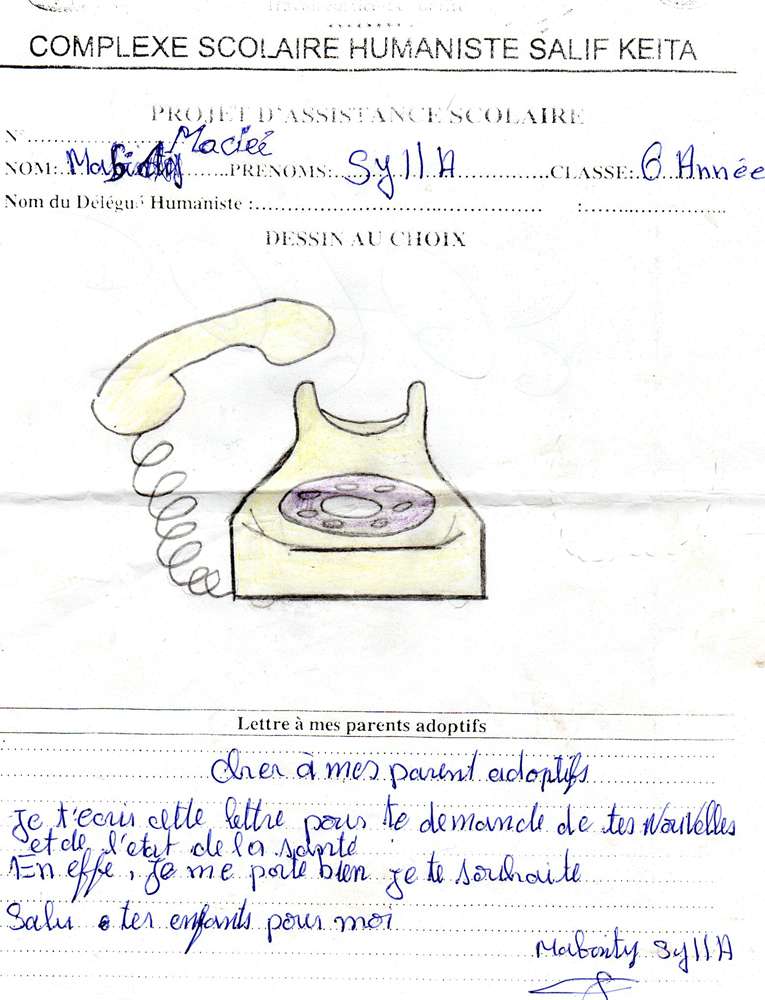 COMPLEXE SCOLAIRE HUMANISTE SALIF KEITA
PROJET D'ASSISTANCE SCOLAIRE
N°.....................Maciré
NOM:..............PRENOMS:....SyllA..............CLASSE:..6 Année
Nom du Délégué Humaniste :..................................... :........................
DESSIN AU CHOIX
Lettre à mes parents adoptifs
cher à mes parent adoptifs
Je t'ecris cette lettre pour te demande de tes Nouvelles
et de l'etat de la santé
En effe, Je me porte bien je te souhaite
Salu a tes enfants pour moi
Mabinty SyllA